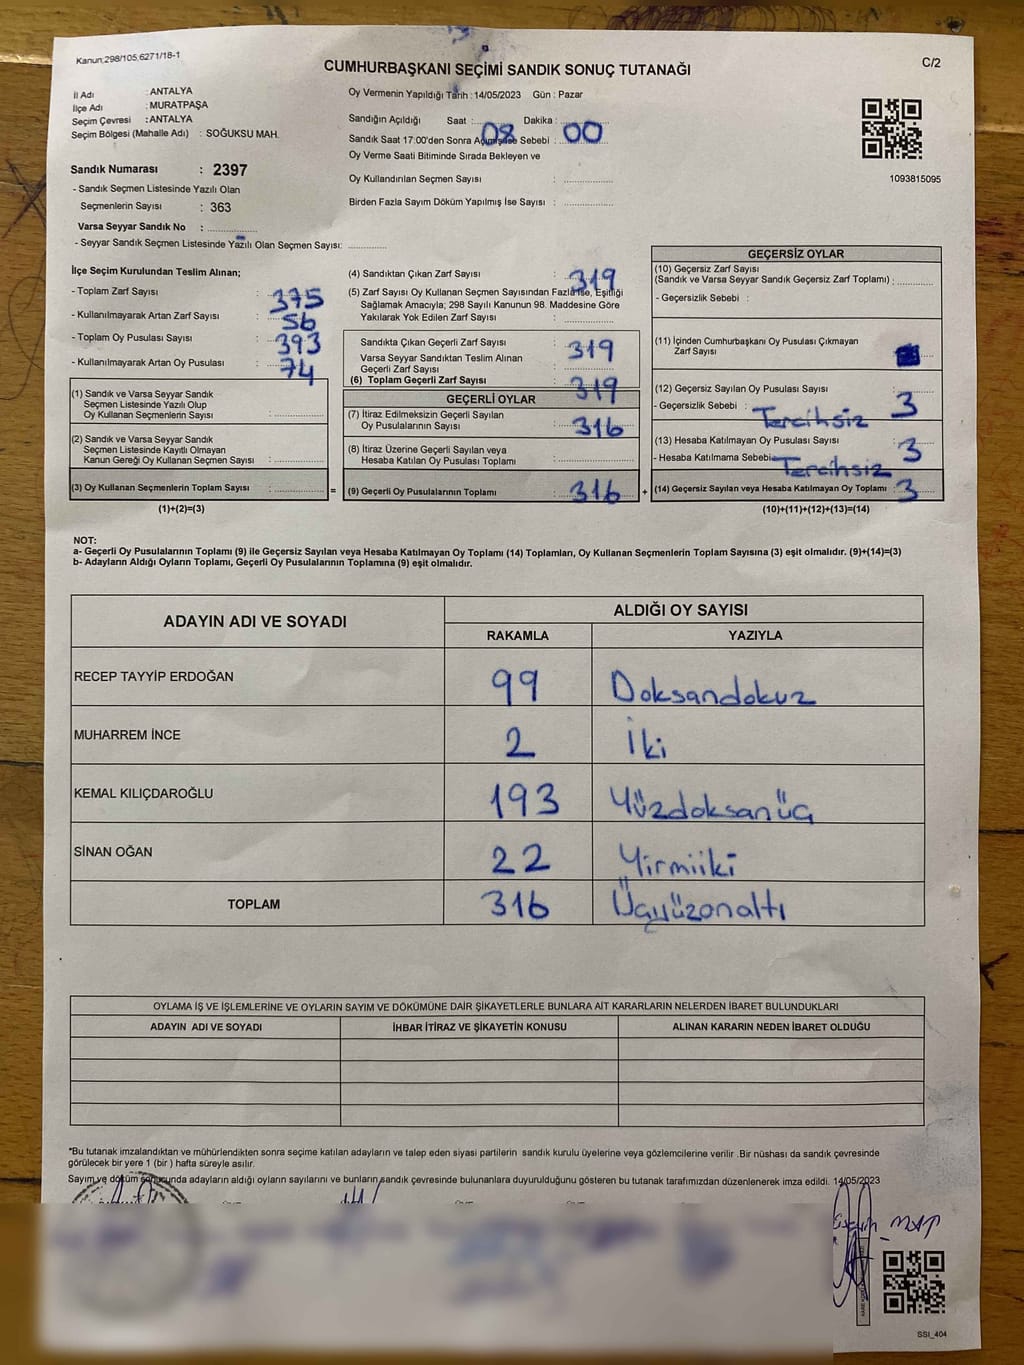 Kanun;298/105;6271/18-1
CUMHURBAŞKANI SEÇİMİ SANDIK SONUÇ TUTANAĞI
C/2
İl Adı : ANTALYA
İlçe Adı : MURATPAŞA
Seçim Çevresi : ANTALYA
Seçim Bölgesi (Mahalle Adı) : SOĞUKSU MAH.
Sandık Numarası : 2397
- Sandık Seçmen Listesinde Yazılı Olan
Seçmenlerin Sayısı : 363
Varsa Seyyar Sandık No :
- Seyyar Sandık Seçmen Listesinde Yazılı Olan Seçmen Sayısı:
Oy Vermenin Yapıldığı Tarih : 14/05/2023 Gün : Pazar
Sandığın Açıldığı Saat : 08 Dakika : 00
Sandık Saat 17:00'den Sonra Açılmışsa Sebebi :
Oy Verme Saati Bitiminde Sırada Bekleyen ve
Oy Kullandırılan Seçmen Sayısı :
Birden Fazla Sayım Döküm Yapılmış İse Sayısı :
1093815095
İlçe Seçim Kurulundan Teslim Alınan;
- Toplam Zarf Sayısı : 375
- Kullanılmayarak Artan Zarf Sayısı : 56
- Toplam Oy Pusulası Sayısı : 393
- Kullanılmayarak Artan Oy Pusulası : 74
(1) Sandık ve Varsa Seyyar Sandık
Seçmen Listesinde Yazılı Olup
Oy Kullanan Seçmenlerin Sayısı :
(2) Sandık ve Varsa Seyyar Sandık
Seçmen Listesinde Kayıtlı Olmayan
Kanun Gereği Oy Kullanan Seçmen Sayısı :
(3) Oy Kullanan Seçmenlerin Toplam Sayısı : =
(1)+(2)=(3)
(4) Sandıktan Çıkan Zarf Sayısı : 319
(5) Zarf Sayısı Oy Kullanan Seçmen Sayısından Fazla İse, Eşitliği
Sağlamak Amacıyla; 298 Sayılı Kanunun 98. Maddesine Göre
Yakılarak Yok Edilen Zarf Sayısı :
Sandıkta Çıkan Geçerli Zarf Sayısı : 319
Varsa Seyyar Sandıktan Teslim Alınan
Geçerli Zarf Sayısı :
(6) Toplam Geçerli Zarf Sayısı : 319
GEÇERLİ OYLAR
(7) İtiraz Edilmeksizin Geçerli Sayılan
Oy Pusulalarının Sayısı : 316
(8) İtiraz Üzerine Geçerli Sayılan veya
Hesaba Katılan Oy Pusulası Toplamı :
(9) Geçerli Oy Pusulalarının Toplamı : 316 +
GEÇERSİZ OYLAR
(10) Geçersiz Zarf Sayısı
(Sandık ve Varsa Seyyar Sandık Geçersiz Zarf Toplamı) :
- Geçersizlik Sebebi :
(11) İçinden Cumhurbaşkanı Oy Pusulası Çıkmayan
Zarf Sayısı
(12) Geçersiz Sayılan Oy Pusulası Sayısı : 3
- Geçersizlik Sebebi : Tercihsiz
(13) Hesaba Katılmayan Oy Pusulası Sayısı : 3
- Hesaba Katılmama Sebebi Tercihsiz
(14) Geçersiz Sayılan veya Hesaba Katılmayan Oy Toplamı : 3
(10)+(11)+(12)+(13)=(14)
NOT:
a- Geçerli Oy Pusulalarının Toplamı (9) ile Geçersiz Sayılan veya Hesaba Katılmayan Oy Toplamı (14) Toplamları, Oy Kullanan Seçmenlerin Toplam Sayısına (3) eşit olmalıdır. (9)+(14)=(3)
b- Adayların Aldığı Oyların Toplamı, Geçerli Oy Pusulalarının Toplamına (9) eşit olmalıdır.
ADAYIN ADI VE SOYADI
ALDIĞI OY SAYISI
RAKAMLA YAZIYLA
RECEP TAYYİP ERDOĞAN 99 Doksandokuz
MUHARREM İNCE 2 İki
KEMAL KILIÇDAROĞLU 193 Yüzdoksanüç
SİNAN OĞAN 22 Yirmiiki
TOPLAM 316 Üçyüzonaltı
OYLAMA İŞ VE İŞLEMLERİNE VE OYLARIN SAYIM VE DÖKÜMÜNE DAİR ŞİKAYETLERLE BUNLARA AİT KARARLARIN NELERDEN İBARET BULUNDUKLARI
ADAYIN ADI VE SOYADI İHBAR İTİRAZ VE ŞİKAYETİN KONUSU ALINAN KARARIN NEDEN İBARET OLDUĞU
*Bu tutanak imzalandıktan ve mühürlendikten sonra seçime katılan adayların ve talep eden siyasi partilerin sandık kurulu üyelerine veya gözlemcilerine verilir .Bir nüshası da sandık çevresinde
görülecek bir yere 1 (bir ) hafta süreyle asılır.
Sayım ve döküm sonucunda adayların aldığı oyların sayılarını ve bunların sandık çevresinde bulunanlara duyurulduğunu gösteren bu tutanak tarafımızdan düzenlenerek imza edildi. 14/05/2023
SSI_404